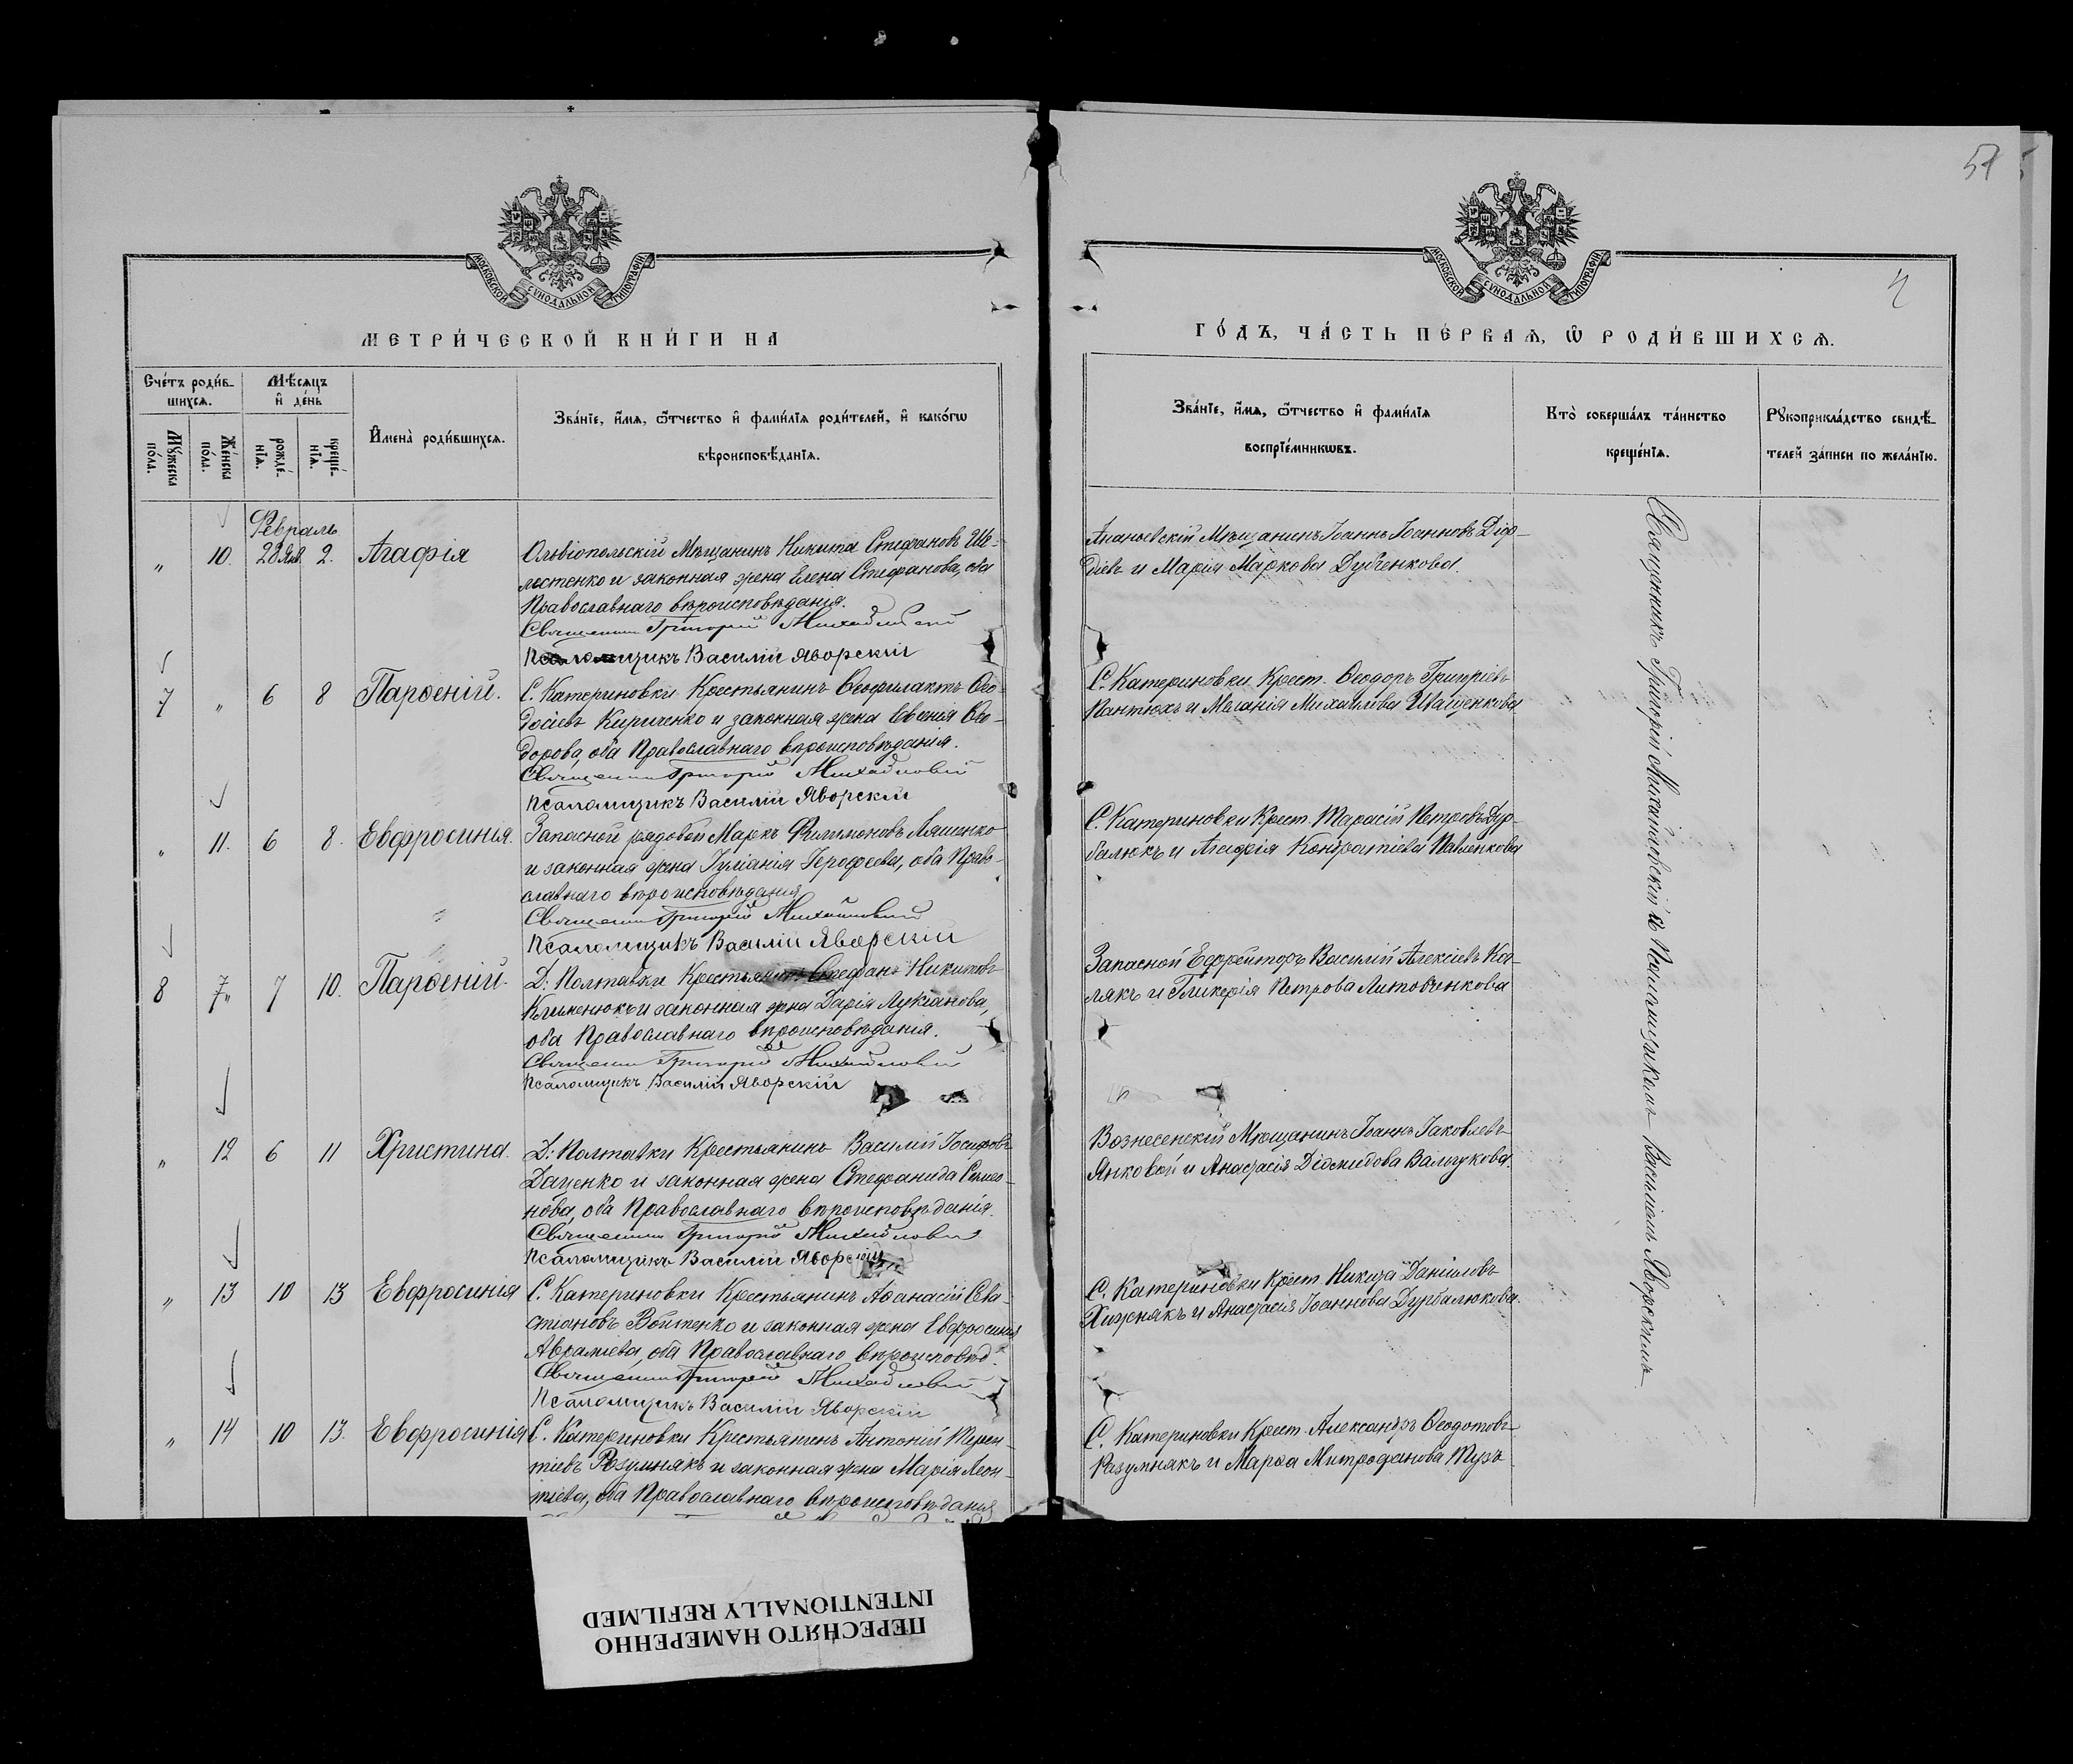 57
МОСКОВСКОЙ СѴНОДАЛЬНОЙ ТИПОГРАФІИ
МЕТРИ́ЧЕСКОЙ КНИ́ГИ НА
Сче́тъ роди́в-
шихсѧ.
Мѣ́сѧцъ
и҆ де́нь
Мꙋ́жеска
по́ла.
Же́нска
по́ла.
рожде́-
нїѧ.
креще́-
нїѧ.
И҆мена̀ роди́вшихсѧ.
Зва́нїе, и҆́мѧ, ѻ҆́тчество и҆ фами́лїѧ роди́телей, и҆ како́гѡ
вѣроисповѣ́данїѧ.
Февраль
„ 10. 28 Янв. 2. Агафія
Ольвіопольскій Мѣщанинъ Никита Стефановъ Ше-
лостенко и законная жена Елена Стефанова, оба
Православнаго вѣроисповѣданія.
Священникъ Григорій Михайловскій
Псаломщикъ Василій Яворскій
7 „ 6 8 Парѳеній.
С. Катериновки Крестьянинъ Ѳеофилактъ Ѳео-
досіевъ Кириченко и законная жена Евгенія Ѳео-
дорова, оба Православнаго вѣроисповѣданія.
Священникъ Григорій Михайловскій
Псаломщикъ Василій Яворскій
„ 11. 6 8. Евфросинья.
Запасной рядовой Маркъ Филимоновъ Ляшенко
и законная жена Іуліанія Іерофеева, оба Право-
славнаго вѣроисповѣданія
Священникъ Григорій Михайловскій
Псаломщикъ Василій Яворскій
8 7„ 7 10. Парѳеній.
Д: Полтавки Крестьянинъ Стефанъ Никитовъ
Клименюкъ и законная жена Дарія Лукіанова,
оба Православнаго вѣроисповѣданія.
Священникъ Григорій Михайловскій
Псаломщикъ Василій Яворскій
„ 12 6 11 Христина.
Д: Полтавки Крестьянинъ Василій Іосифовъ
Даценко и законная жена Стефанида Семео-
нова, оба Православнаго вѣроисповѣданія.
Священникъ Григорій Михайловскій
Псаломщикъ Василій Яворскій
„ 13 10 13 Евфросинія
С. Катериновки Крестьянинъ Аѳанасій Сева-
стіановъ Войтенко и законная жена Евфросинія
Авраміева, оба Православнаго вѣроисповѣд.
Священникъ Григорій Михайловскій
Псаломщикъ Василій Яворскій
„ 14 10 13. Евфросинія
С. Катериновки Крестьянинъ Антоній Терен-
тіевъ Розумнякъ и законная жена Марія Леон-
тіева, оба Православнаго вѣроисповѣданія
МОСКОВСКОЙ СѴНОДАЛЬНОЙ ТИПОГРАФІИ
ГО́ДЪ, ЧА́СТЬ ПЕ́РВАѦ, Ѡ҆ РОДИ́ВШИХСѦ.
Зва́нїе, и҆́мѧ, ѻ҆́тчество и҆ фами́лїѧ
воспрїе́мникѡвъ.
Кто̀ соверша́лъ та́инство
креще́нїѧ.
Рꙋкоприкла́дство свидѣ́-
телей за́писи по жела́нїю.
Ананьевскій Мѣщанинъ Іоаннъ Іоанновъ Дід-
діевъ и Марія Маркова Дубченкова.
С. Катериновки Крест. Ѳеодоръ Григоріевъ
Пантюхъ и Меланія Михаилова Иващенкова
С. Катериновки Крест. Тарасій Петровъ Дур-
балюкъ и Агафія Кондратіева Павленкова
Запасной Ефрейторъ Василій Алексіевъ Ка-
лякъ и Гликерія Петрова Литовченкова
Вознесенскій Мѣщанинъ Іоаннъ Іаковлевъ
Янковой и Анастасія Діомидова Валичукова.
С. Катериновки Крест. Никита Даніиловъ
Хижнякъ и Анастасія Іоаннова Дурбалюкова.
С. Катериновки Крест. Александръ Ѳеодотовъ
Разумнякъ и Марѳа Митрофанова Тузъ
Священникъ Григорій Михайловскій съ Псаломщикомъ Василіемъ Яворскимъ
ПЕРЕСНЯТО НАМЕРЕННО
INTENTIONALLY REFILMED